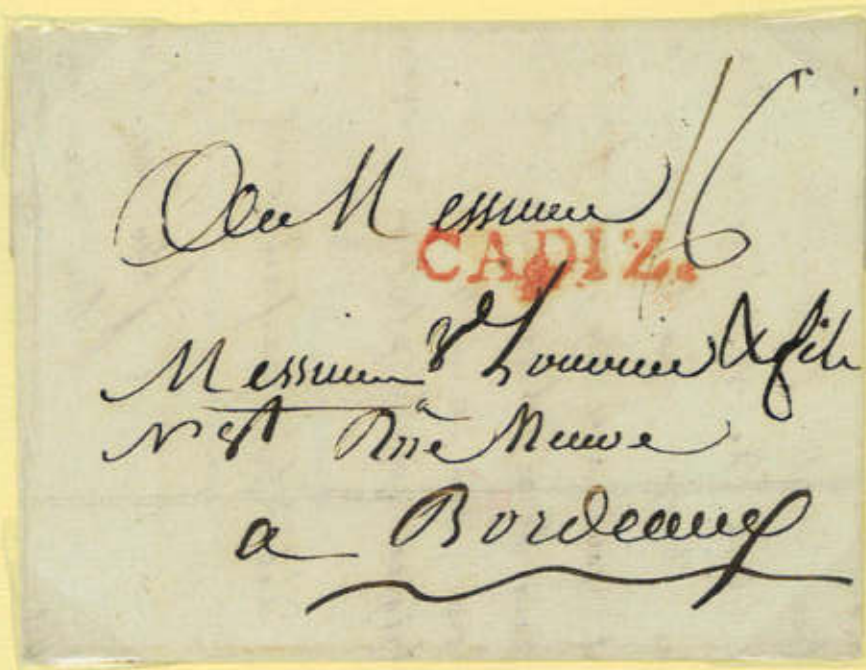 A Messieurs 16
CADIZ.
Messieurs Ve & fils
N° Rüe Neuve
a Bordeaux